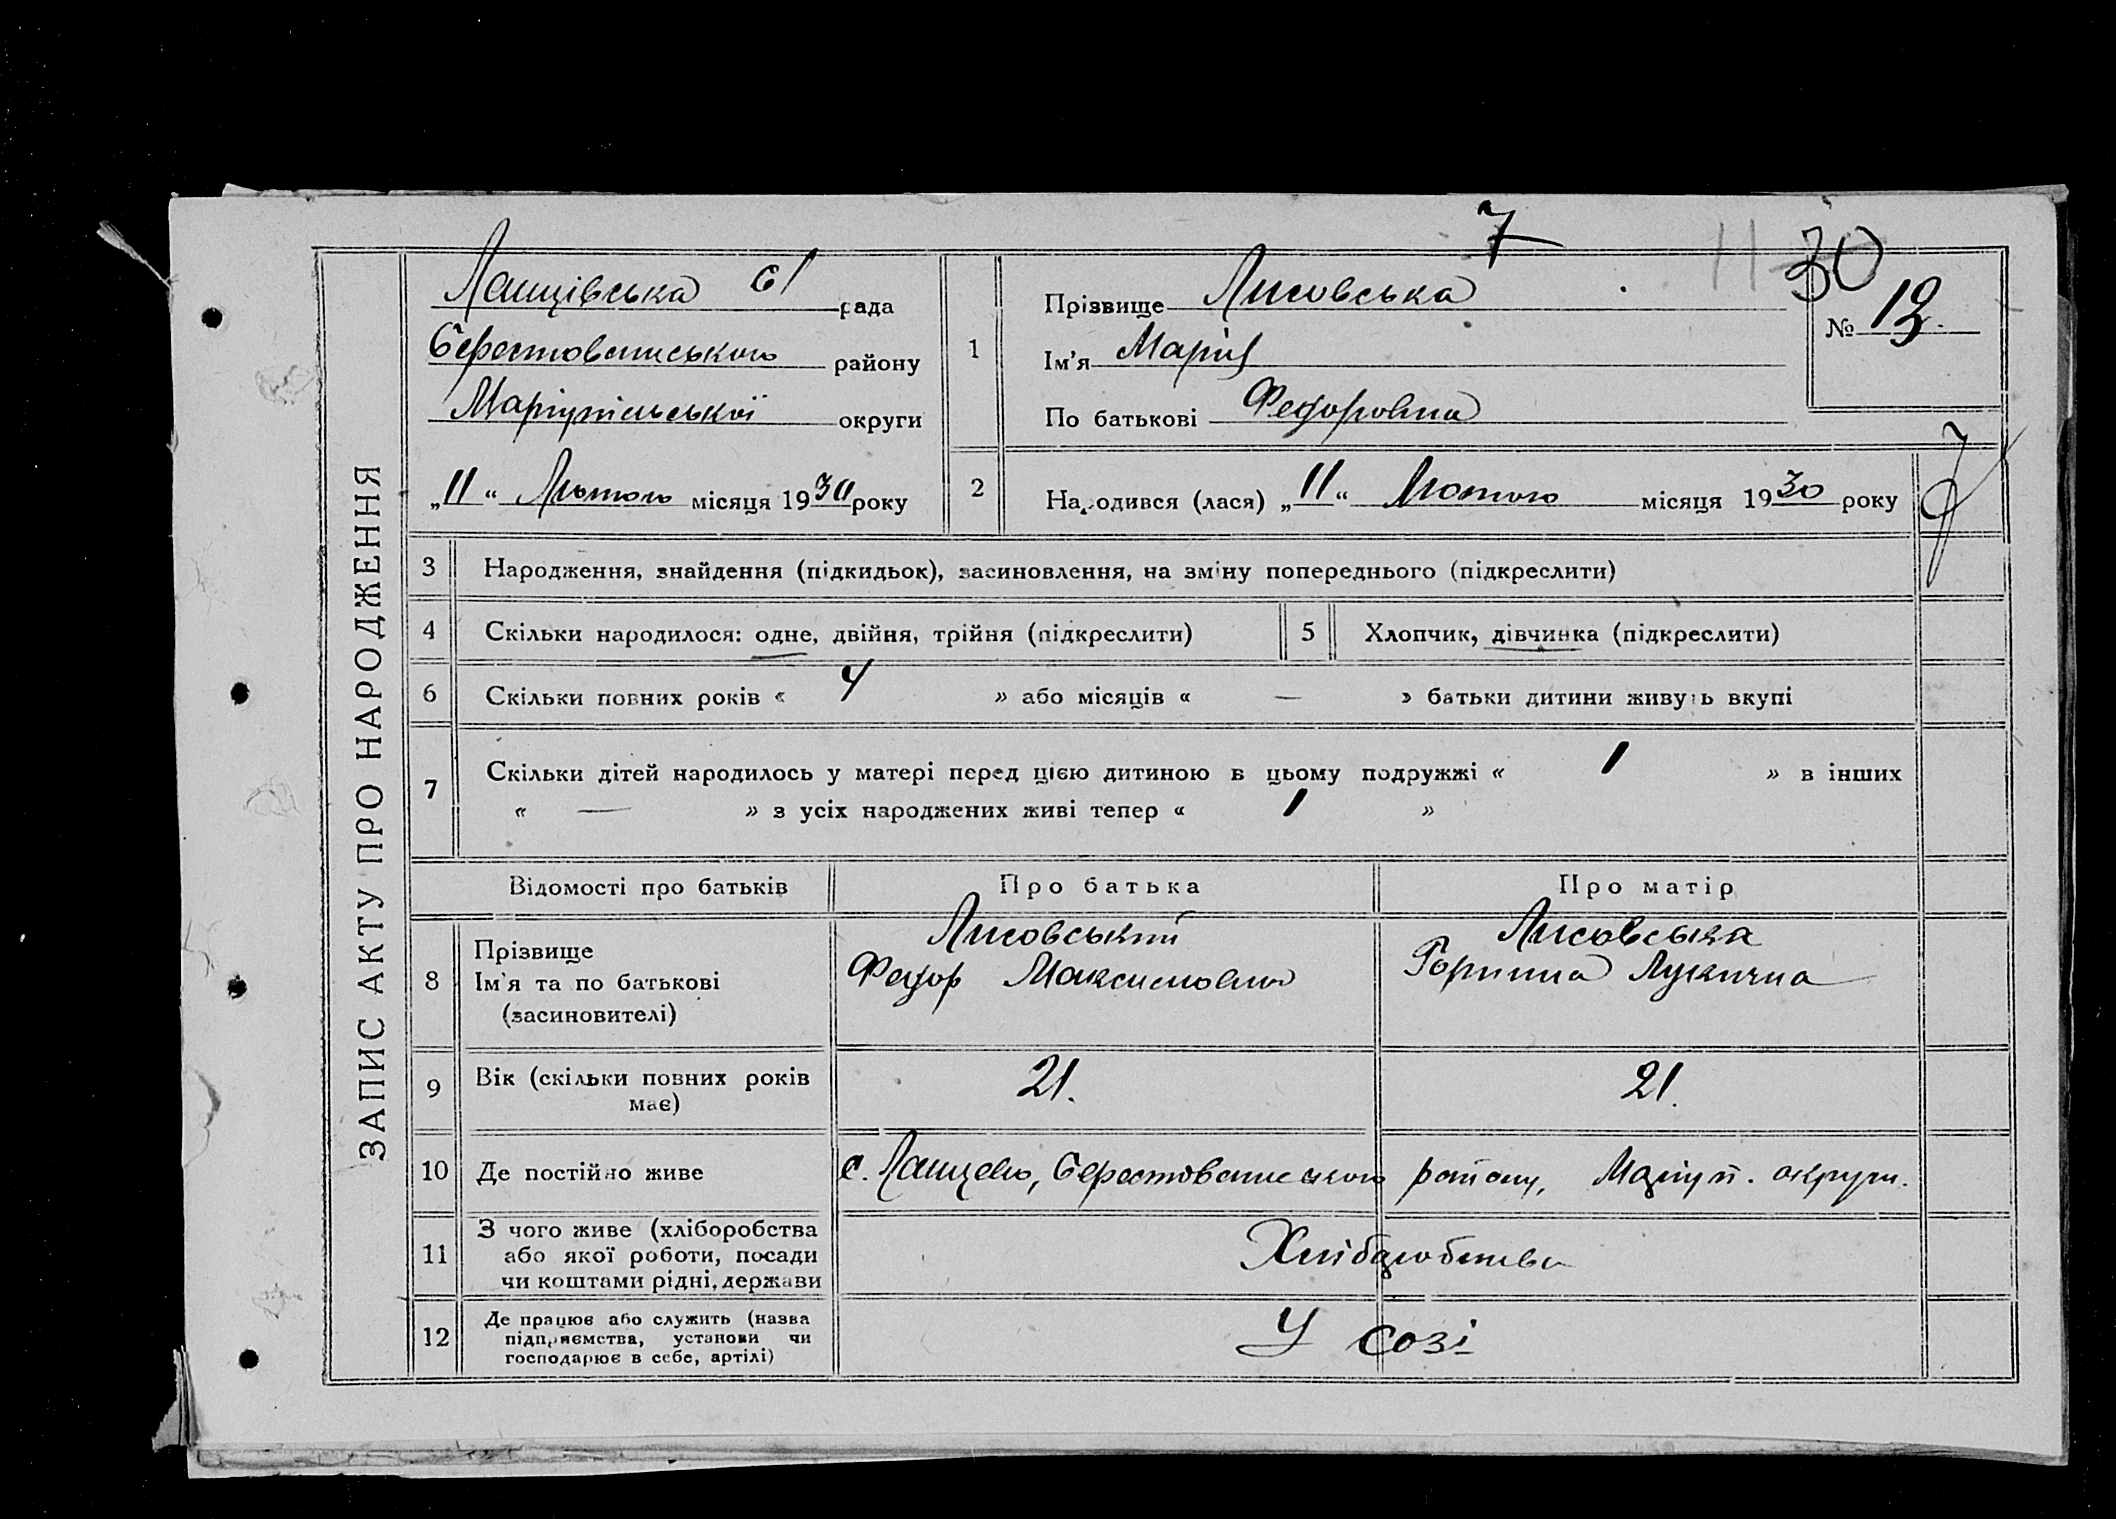 7
11 30
ЗАПИС АКТУ ПРО НАРОДЖЕННЯ
Ланцівська с/рада
Берестовського району
Маріупільської округи
„11“ Лютого місяця 1930 року
1
Прізвище Лисовська
Ім’я Марія
По батькові Федоровна
№ 12.
2 Народився (лася) „11“ Лютого місяця 1930 року
3 Народження, знайдення (підкидьок), засиновлення, на зміну попереднього (підкреслити)
4 Скільки народилося: одне, двійня, трійня (підкреслити) 5 Хлопчик, дівчинка (підкреслити)
6 Скільки повних років « 4 » або місяців « — » батьки дитини живуть вкупі
7 Скільки дітей народилось у матері перед цією дитиною в цьому подружжі « 1 » в інших
« — » з усіх народжених живі тепер « 1 »
Відомості про батьків Про батька Про матір
8 Прізвище Ім’я та по батькові (засиновителі)
Лисовський Федор Максимович
Лисовська Горпина Лукична
9 Вік (скільки повних років має) 21. 21.
10 Де постійно живе с. района, Маріуп. округи.
11 З чого живе (хліборобства або якої роботи, посади чи коштами рідні, держави Хліборобства
12 Де працює або служить (назва підприємства, установи чи господарює в себе, артілі) У созі